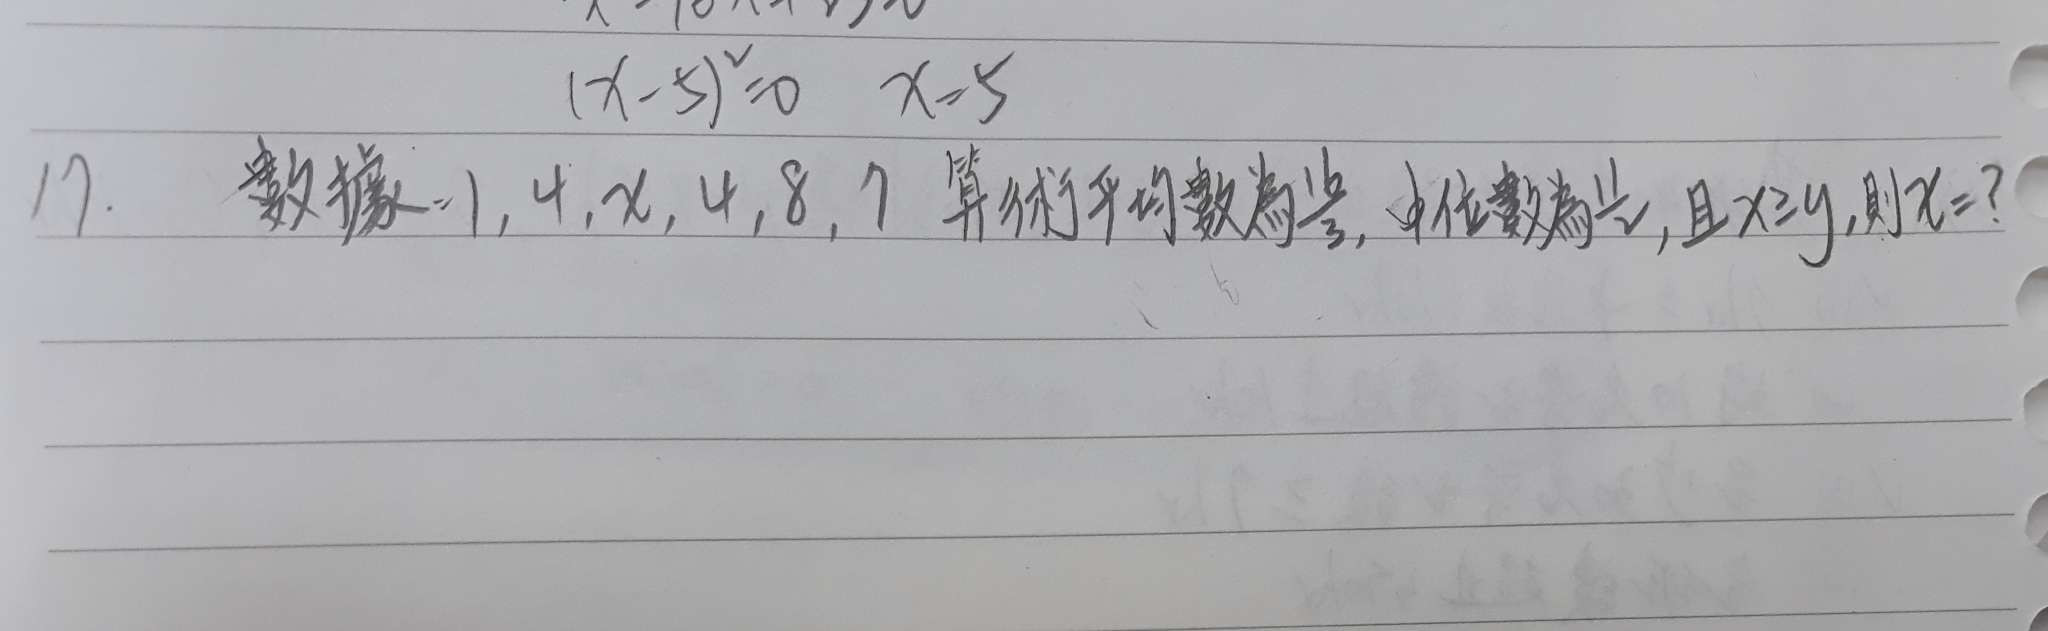 (x-5)²=0 x=5
17. 數據-1, 4, x, 4, 8, 7 算術平均數為16/3, 中位數為11/2, 且x≥y, 則x=?